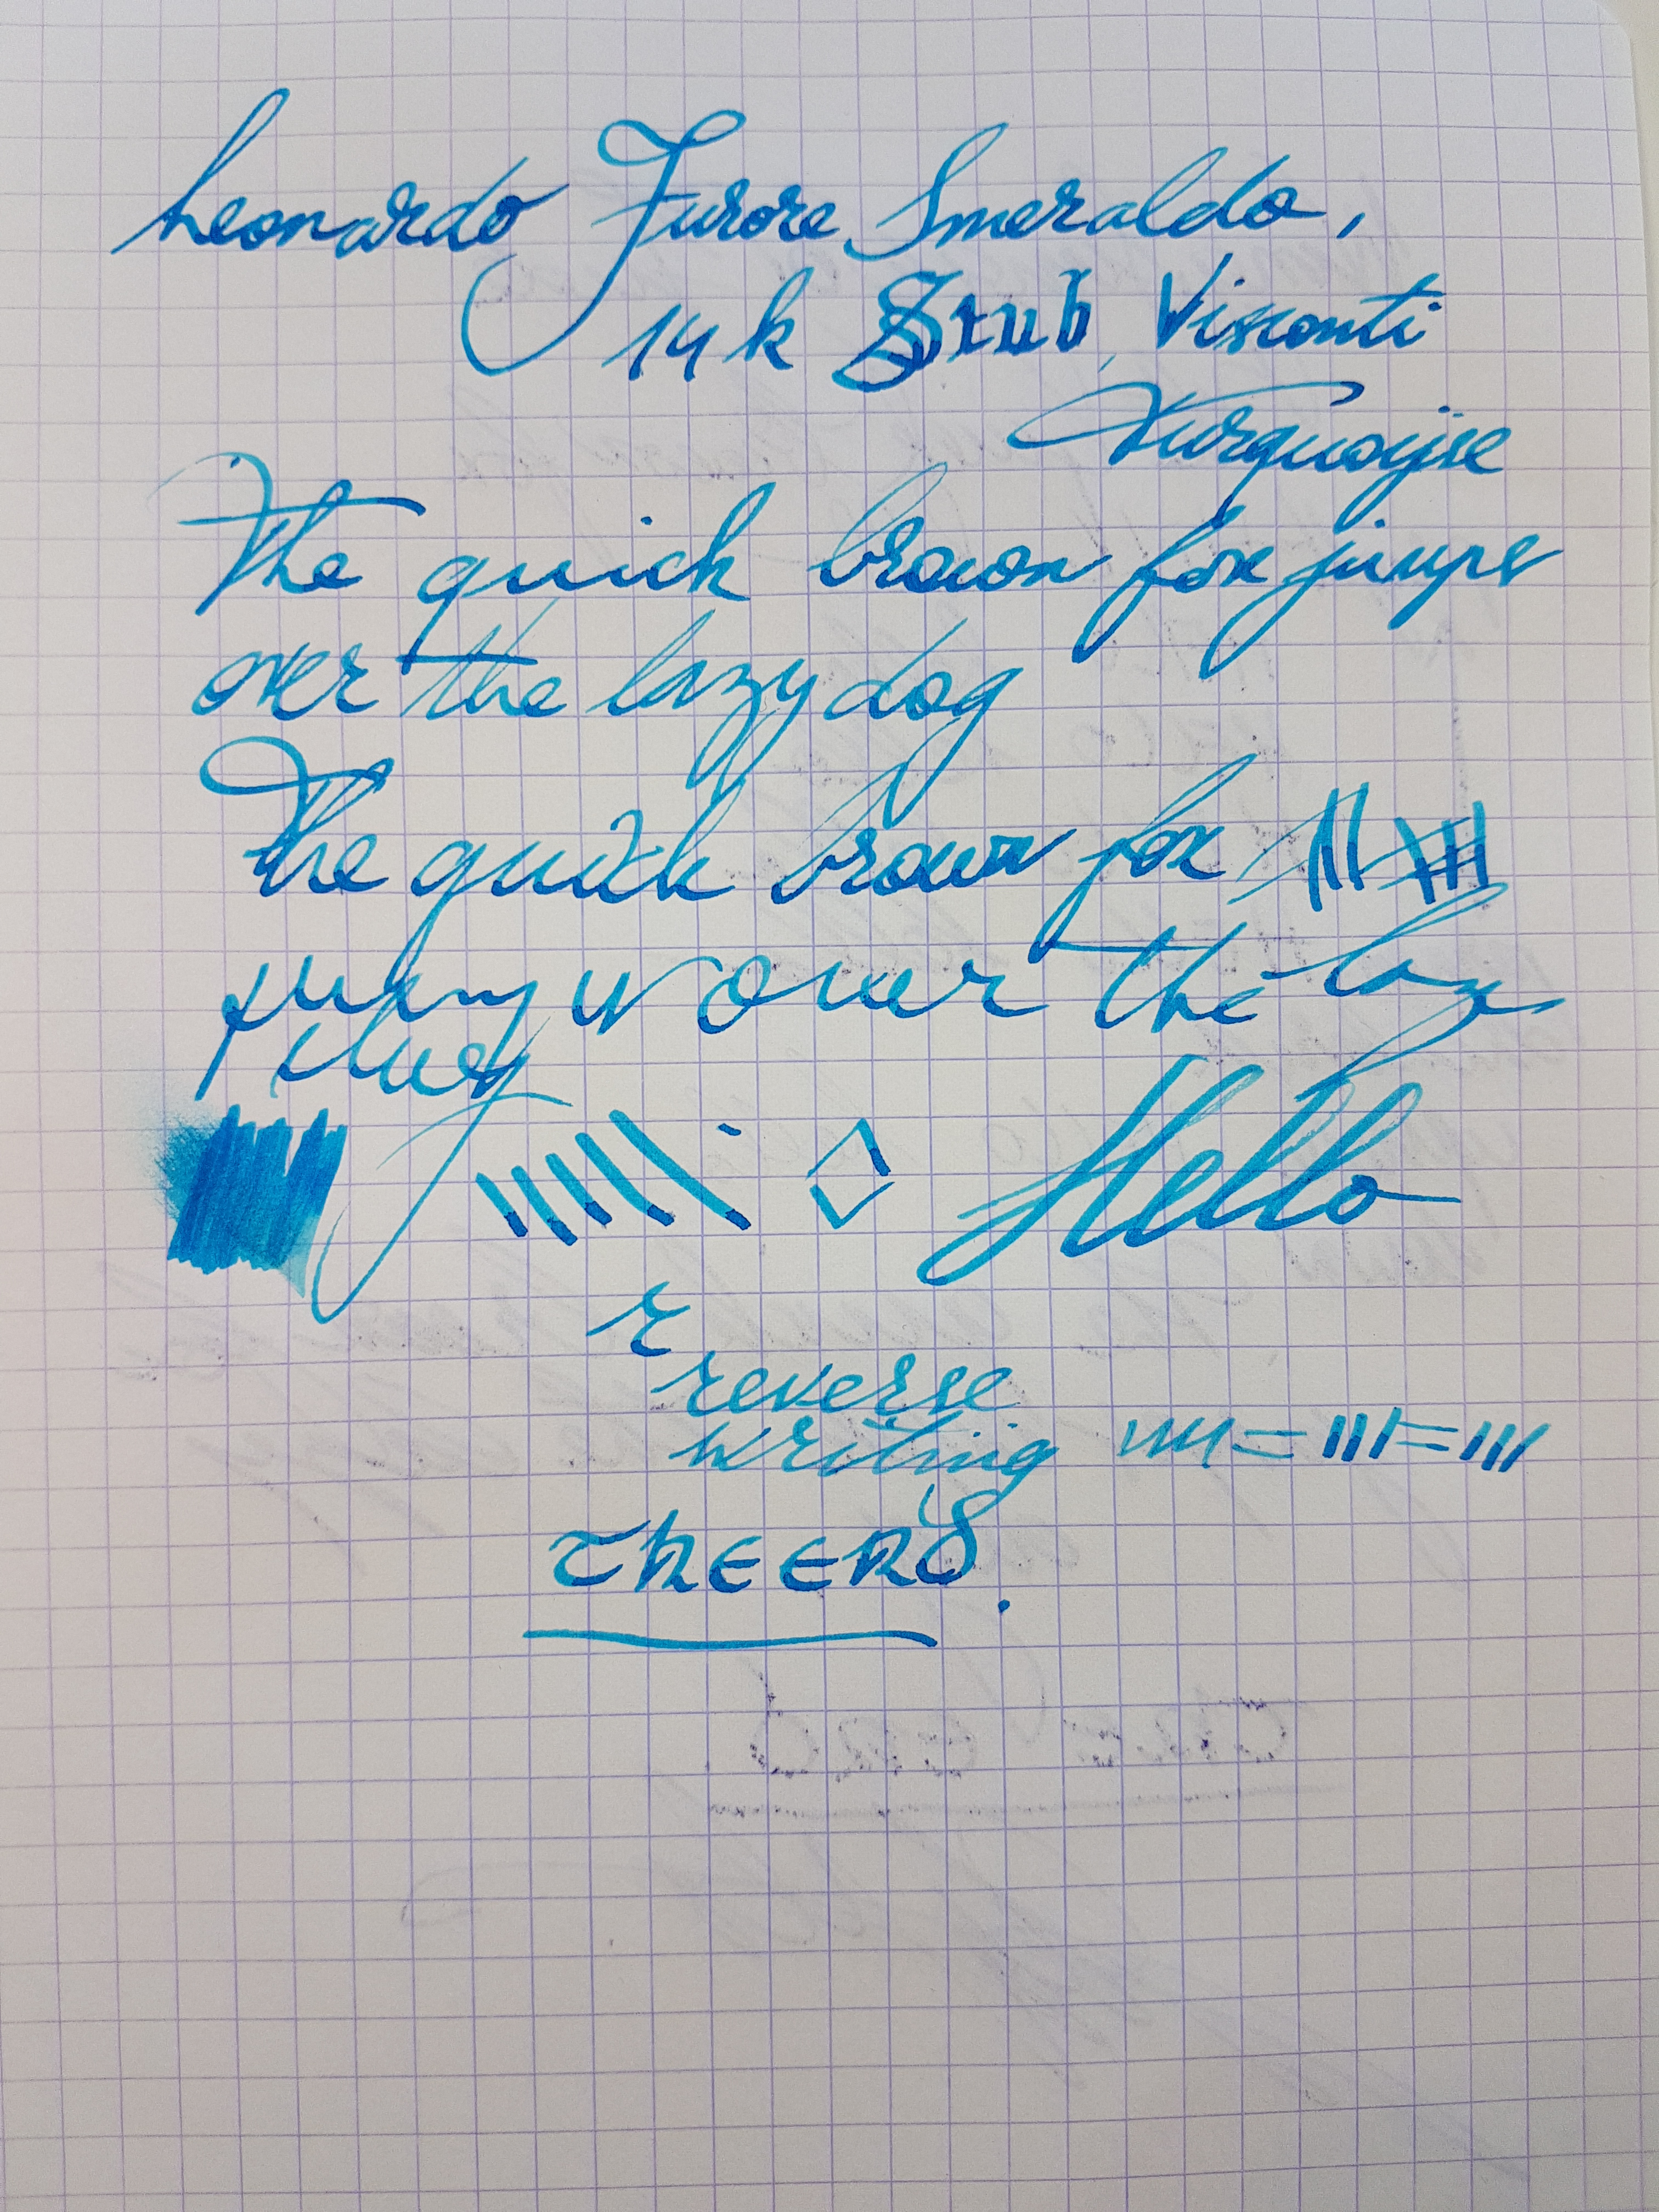 Leonardo Furore Smeraldo,
14k Stub Visconti
Turquoise
The quick brown fox jumps
over the lazy dog
The quick brown fox
over the
Hello
r
reverse
writing
CHEERS.